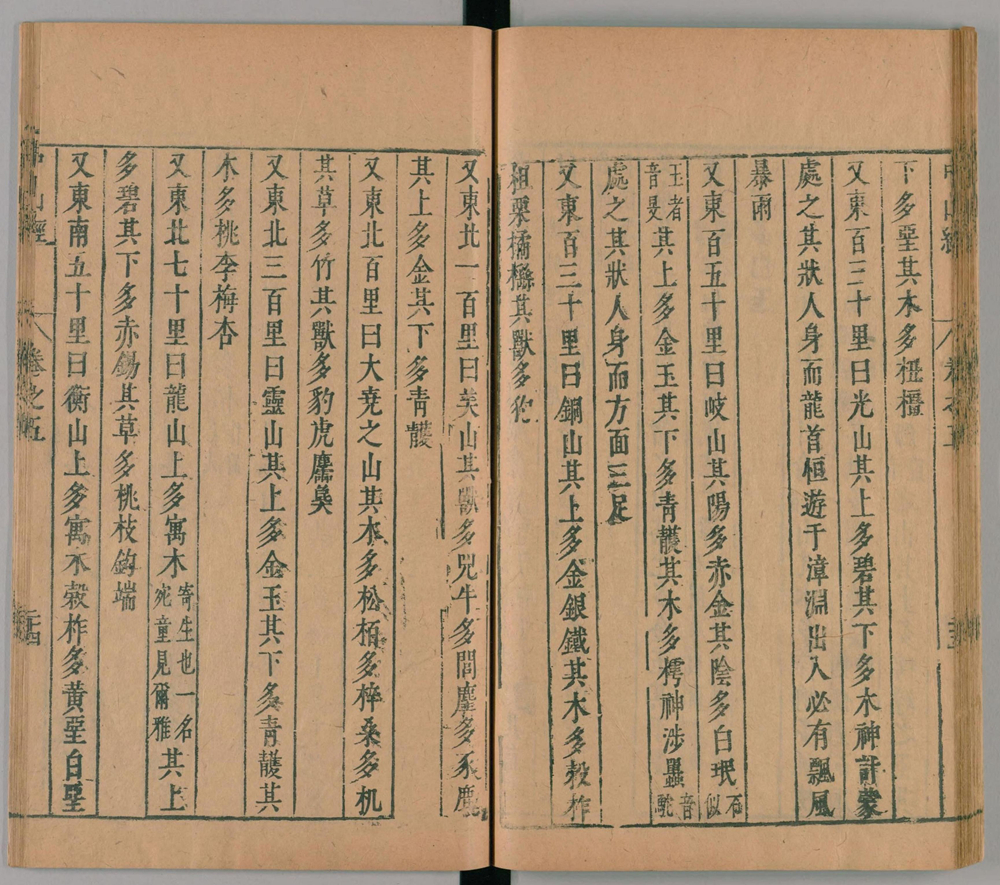 中山經 卷之五
下多堊其木多櫄橿
又東百三十里曰光山其上多碧其下多木神計蒙
處之其狀人身而龍首恒遊于漳淵出入必有飄風
暴雨
又東百五十里曰岐山其陽多赤金其陰多白珉石似
玉者音旻其上多金玉其下多青雘其木多樗神涉䖝音鼉
處之其狀人身而方面三足
又東百三十里曰銅山其上多金銀鐵其木多榖柞
柤栗橘櫾其獸多犳
又東北一百里曰美山其獸多兕牛多閭麈多豕鹿
其上多金其下多青雘
又東北百里曰大堯之山其木多松栢多梓桑多机
其草多竹其獸多豹虎麢㚟
又東北三百里曰靈山其上多金玉其下多青雘其
木多桃李梅杏
又東北七十里曰龍山上多寓木寄生也一名宛童見爾雅其上
多碧其下多赤錫其草多桃枝鉤端
又東南五十里曰衡山上多寓木榖柞多黃堊白堊
中山經 卷之五 二十四